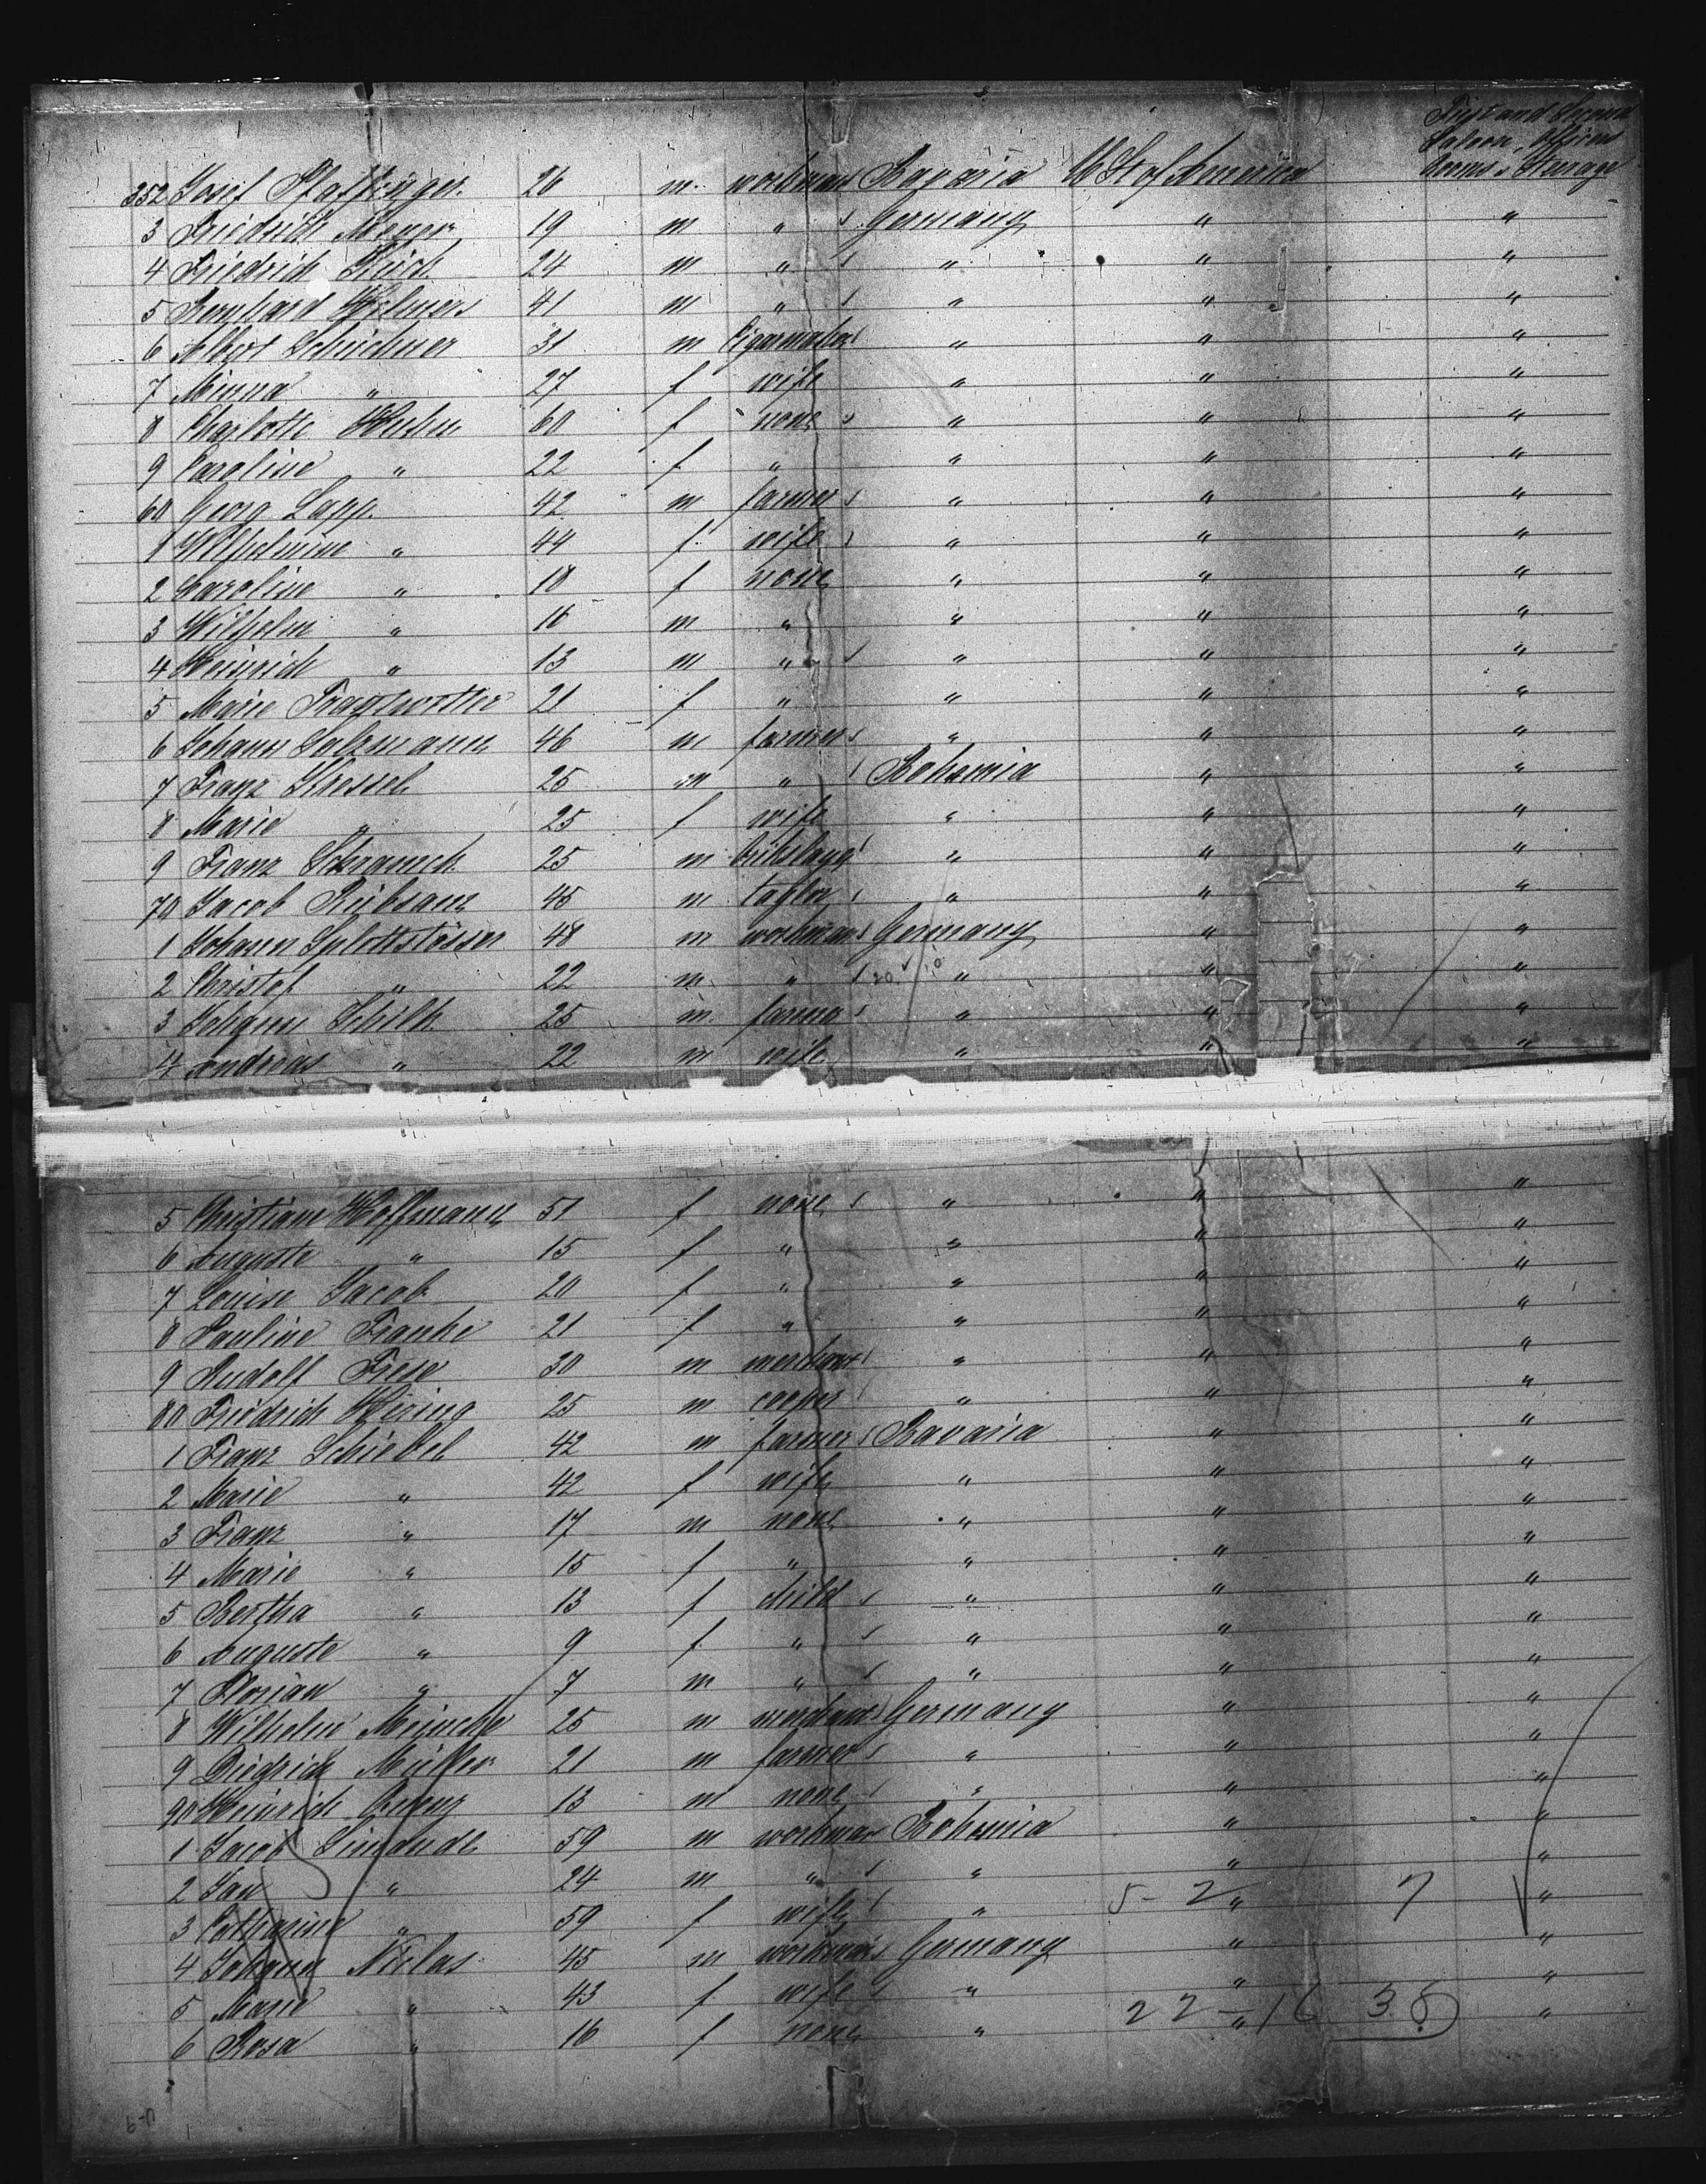 First and Second
Saloon, Officers
Rooms & Steerage
352 Josef 26 m. workman Bavaria U. St of America
3 Friedrich Meyer 19 m " Germany " "
4 Friedrich 24 m " " " "
5 Bernhard 41 m " " " "
6 Albert 31 m Cigarmaker " " "
7 Minna " 27 f wife " " "
8 Charlotte 60 f none " " "
9 Caroline " 22 f " " " "
60 Georg Lapp. 42 m farmer " " "
1 Wilhelmine " 44 f wife " " "
2 Caroline " 18 f none " " "
3 Wilhelm " 16 m " " " "
4 Heinrich " 13 m " " " "
5 Marie 21 f " " " "
6 Johann Salzmann 46 m farmer " " "
7 Franz Kressel 25 m " Bohemia " "
8 Marie " 25 f wife " " "
9 Franz Schramek 25 m " " "
70 Jacob Rübsam 45 m taylor " " "
1 Johann Splettstösser 48 m workman Germany " "
2 Christof " 22 m " 20 10 " " "
3 Johann Schilk 25 m. farmer " " "
4 Andreas " 22 m wife " " "
5 Christiane Hoffmann 51 f none " " "
6 Auguste " 15 f " " " "
7 Louise Jacob 20 f " " " "
8 Pauline Franke 21 f " " " "
9 Rudolf Frese 30 m merchant " " "
80 Friedrich Hering 25 m cooper " " "
1 Franz Schiebel 42 m farmer Bavaria " "
2 Marie " 42 f wife " " "
3 Franz " 17 m none " " "
4 Marie " 15 f " " " "
5 Bertha " 13 f child " " "
6 Auguste " 9 f " " " "
7 Florian " 7 m " " " "
8 Wilhelm Meincke 25 m merchant Germany " "
9 Diedrich Müller 21 m farmer " " "
90 Heinrich 13 m none " " "
1 Jacob 59 m workman Bohemia " "
2 Jan " 24 m " " " "
3 Catharine " 59 f wife " 5-2 " 7 "
4 Johann Niclas 45 m workman Germany " "
5 Marie " 43 f wife " " "
6 Rosa " 16 f none " 22-16 " 38 "